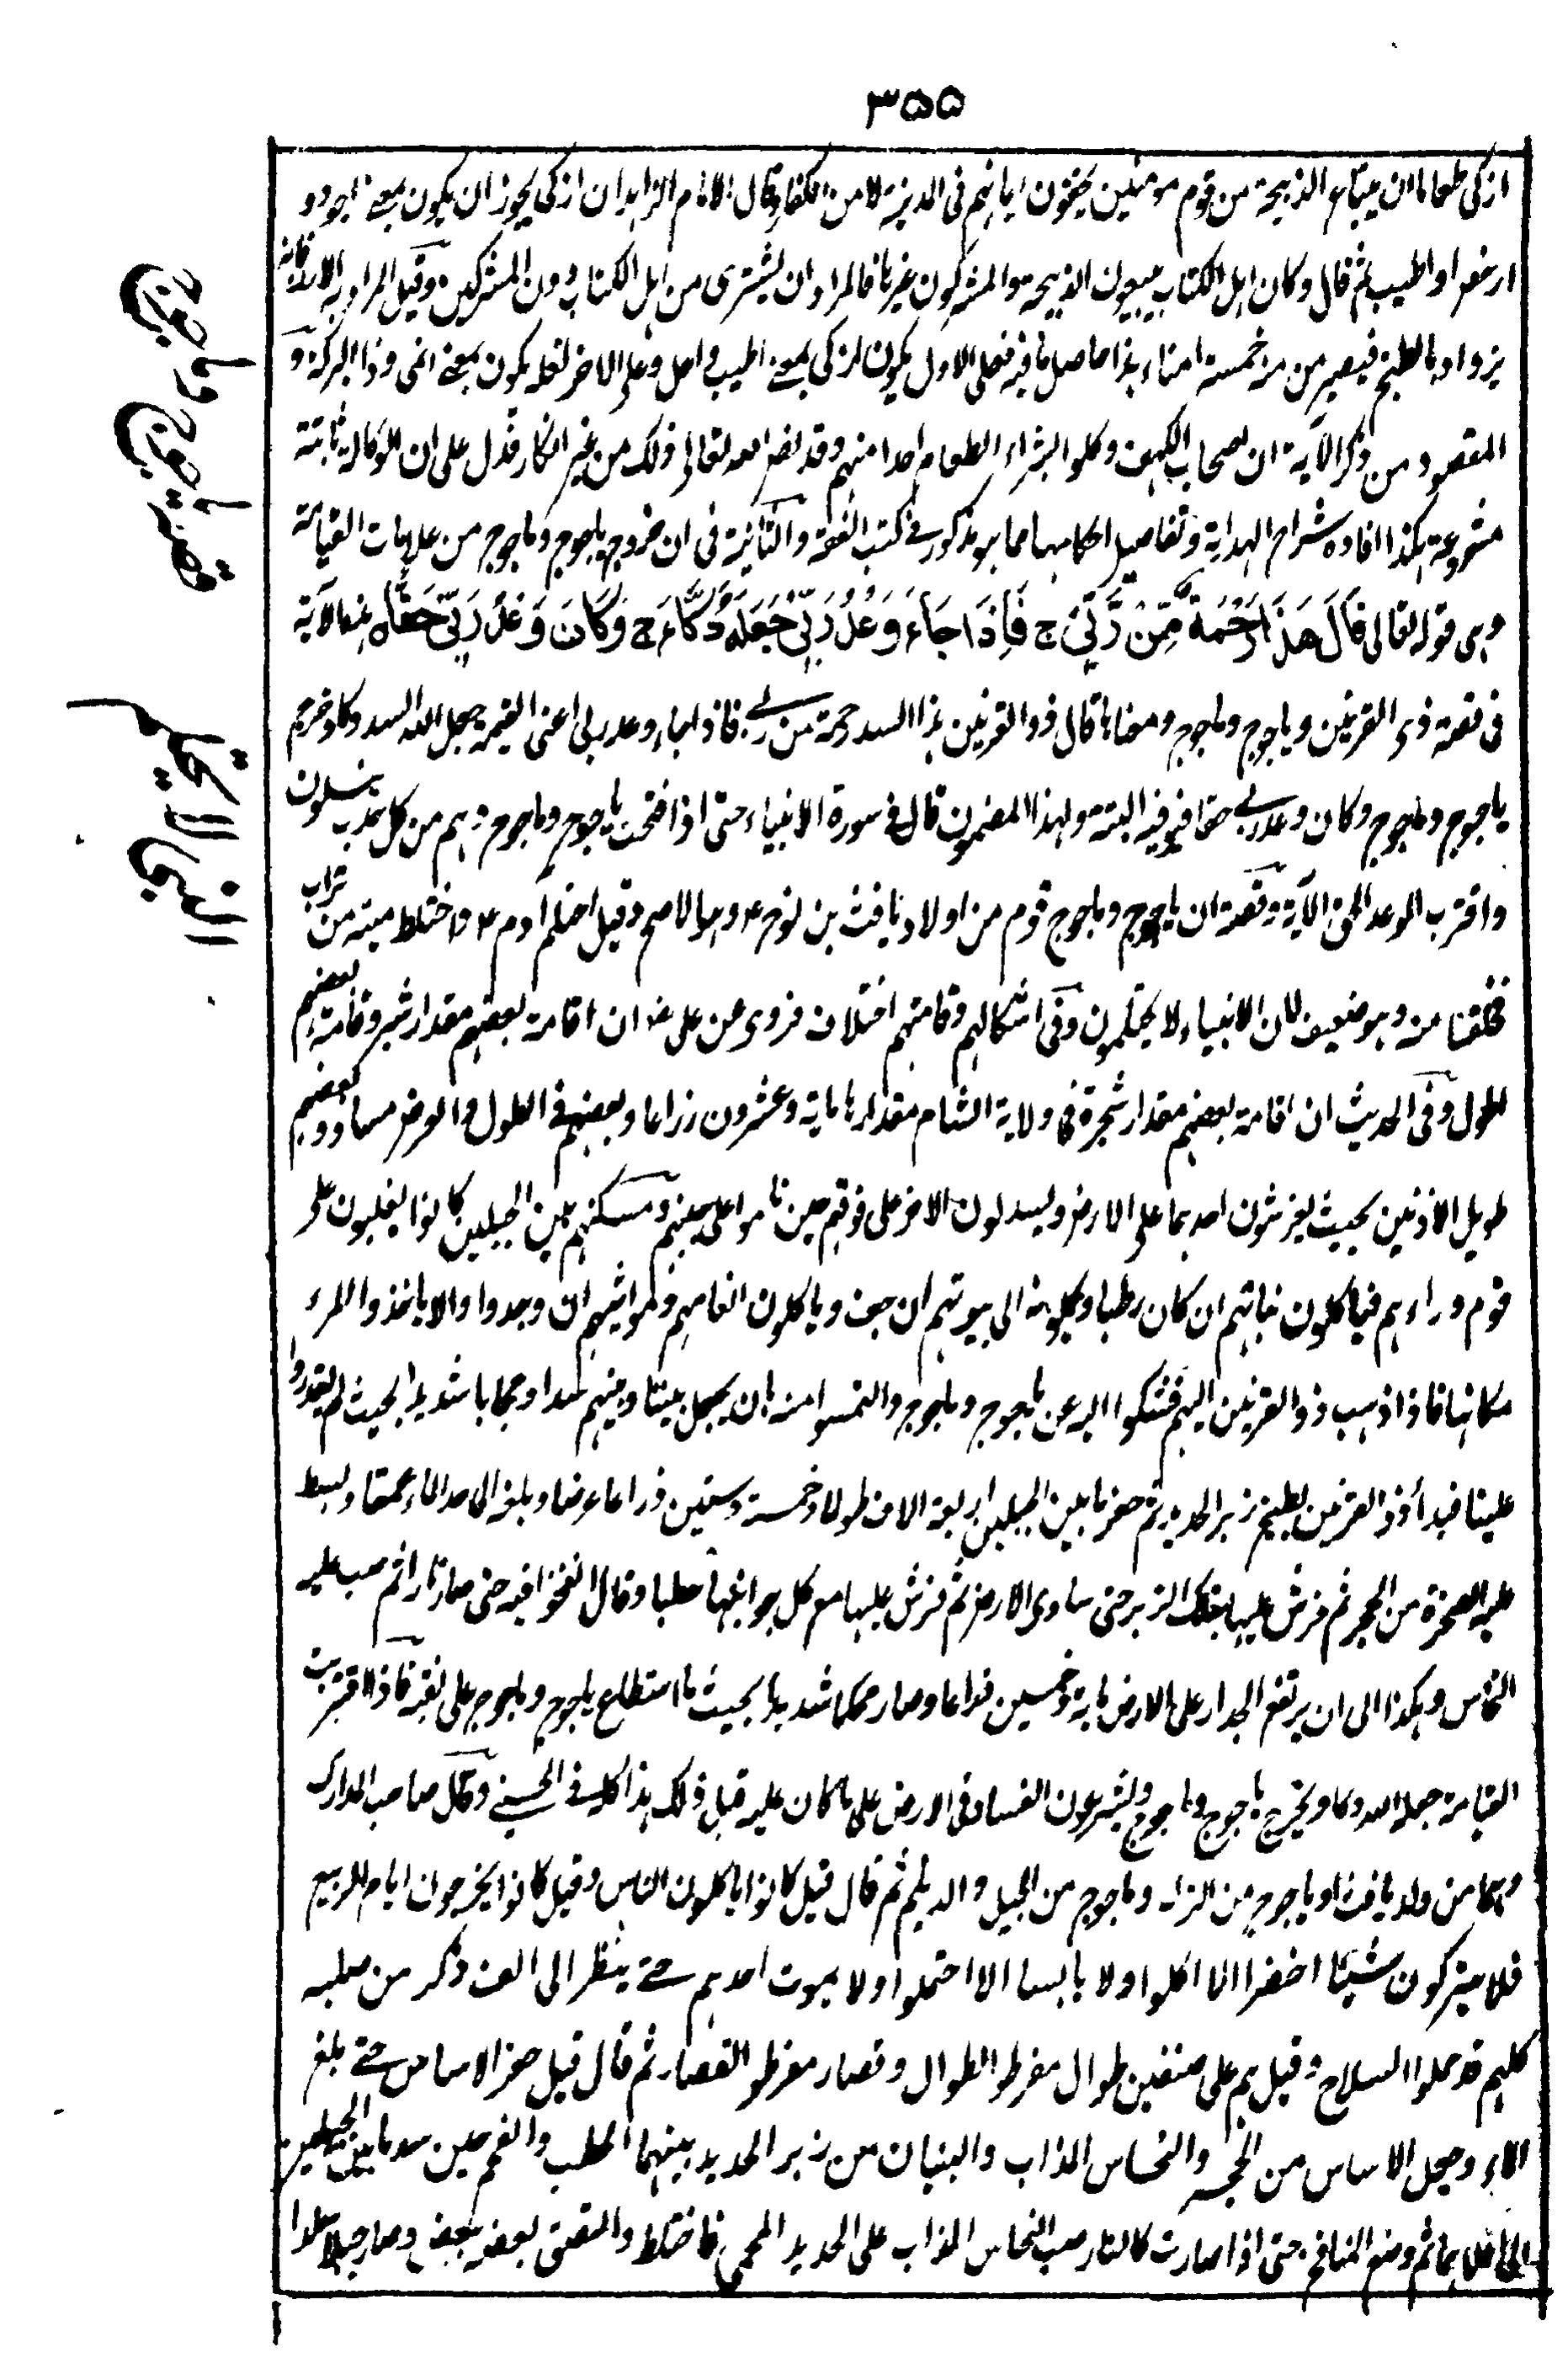 ۳۵۵
ازكى طعاما ان يبتاع الذبيحة من قوم مومنين يخفون ايمانهم فى المدينة لا من الكفار وقال الامام الزاهد ان ازكى يجوز ان يكون بمعنے اجود و
ارخص او اطيب ثم قال وكان اهل الكتاب يبيعون الذبيحة والمشركون غيرها فالمراد ان يشترى من اهل الكتاب دون المشركين وقيل المراد به الارز فانه
يزداد بالطبخ فيصير من منه خمسة امناء هذا حاصل ما فيه فعلى الاول يكون ازكى بمعنے اطيب واحل وعلى الاخر لعله يكون بمعنے انمى وذا البركة و
المقصود من ذكر الآية ان اصحاب الكهف وكلوا بشراء الطعام احدا منهم وقد قص الله تعالى ذلك من غير انكار فدل على ان الوكالة ثابتة
مشروعة هكذا افاده شراح الهداية وتفاصيل احكامها مما هو مذكور فے كتب الفقه والثانية فى ان خروج ياجوج وماجوج من علامات القيامة
وهى قوله تعالى قَالَ هَذَا رَحْمَةٌ مِّنْ رَّبِّيْ ج فَاِذَا جَاءَ وَعْدُ رَبِّيْ جَعَلَهٗ دَكَّاءَ ج وَكَانَ وَعْدُ رَبِّيْ حَقًّا ه هذه الآية
فى قصة ذى القرنين وياجوج وماجوج ومعناها قال ذو القرنين هذا السد رحمة من ربے فاذا جاء وعد ربى اعنى القيمة جعل الله السد دكا وخرج
ياجوج وماجوج وكان وعد ربے حقا فيه البتة ولهذا المضمون قال فے سورة الانبياء حتى اذا فتحت ياجوج وماجوج وهم من كل حدب ينسلون
واقترب الوعد الحق الآية وقصته ان ياجوج وماجوج قوم من اولاد يافث بن نوح ع وهو الاصح وقيل احتلم ادم ع واختلط منيه من تراب
فخلقنا منه وهو ضعيف لان الانبياء لا يحتلمون وفى اشكالهم وقامتهم اختلاف فروى عن على رض ان اقامة بعضهم مقدار شبر وقامة بعضهم
اطول وفى الحديث ان اقامة بعضهم مقدار شجرة فى ولاية الشام مقدارها ماية وعشرون زراعا وبعضهم فے الطول والعرض مساو وبعضهم
طويل الاذنين بحيث يفرشون احدهما على الارض ويسدلون الاخر على فوقهم حين ناموا على جنبهم ومسكنهم بين الجبلين كانوا يغلبون على
قوم وراءهم فياكلون نباتهم ان كان رطبا ويحملونه الى بيوتهم ان جف وياكلون انعامهم ومواشيهم ان وجدوا والا ياخذوا المرء
مكانها فاذا ذهب ذو القرنين اليهم فشكوا اليه عن ياجوج وماجوج والتمسوا منه ان يجعل بيننا وبينهم سدا وحجابا شديدا بحيث لم يقدروا
علينا فبدأ ذو القرنين بطبخ زبر الحديد ثم حفر ما بين الجبلين اربعة الاف طولا وخمسة وستين ذراعا عرضا وبلغ الى حد الماء عمقا وبسط
عليه الصخرة من الحجر ثم فرش عليها تلك الزبر حتى ساوى الارض ثم فرش عليها مع كل جوانبها حطبا وقال انفخوا فيه حتى صار نارا ثم صب عليه
النحاس وهكذا الى ان يرتفع الجدار على الارض ماية وخمسين ذراعا وصار محكما شديدا بحيث ما استطاع ياجوج وماجوج على نقبه فاذا اقتربت
القيامة جعله الله دكا ويخرج ياجوج وماجوج ويشرعون الفساد فى الارض على ما كان عليه قبل ذلك هذا كله فے الحسينے وقال صاحب المدارك
وهما من ولد يافث او ياجوج من الترك وماجوج من الجيل والديلم ثم قال قيل كانوا ياكلون الناس وقيل كانوا يخرجون ايام الربيع
فلا يتركون شيئا اخضرا الا اكلوا ولا يابسا الا احتملوا ولا يموت احدهم حتے ينظر الى الف ذكر من صلبه
كلهم قد حملوا السلاح وقيل هم على صنفين طوال مفرطو الطوال وقصار مفرطو القصار ثم قال قيل حفر الاساس حتے بلغ
الماء وجعل الاساس من الحجر والنحاس المذاب والبنيان من زبر الحديد بينهما الحطب والفحم حين سد ما بين الجبلين
الى اعلاهما ثم وضع المنافخ حتى اذا صارت كالنار صب النحاس المذاب على الحديد المحمى فاختلط والتصق بعضه ببعض وصار جبلا صلدا
قصة ياجوج وماجوج
النبى لا يحتلم